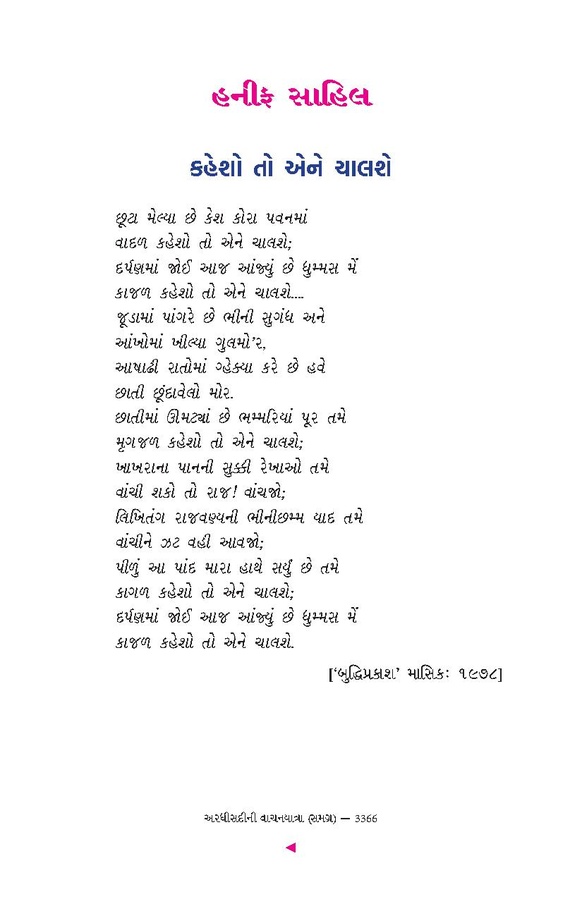 હનીફ સાહિલ
કહેશો તો એને ચાલશે
છૂટા મેલ્યા છે કેશ કોરા પવનમાં
વાદળ કહેશો તો એને ચાલશે;
દર્પણમાં જોઈ આજ આંજ્યું છે ધુમ્મસ મેં
કાજળ કહેશો તો એને ચાલશે....
જૂડામાં પાંગરે છે ભીની સુગંધ અને
આંખોમાં ખીલ્યા ગુલમો’ર,
આષાઢી રાતોમાં ગ્હેક્યા કરે છે હવે
છાતી છૂંદાવેલો મોર.
છાતીમાં ઊમટ્યાં છે ભમ્મરિયાં પૂર તમે
મૃગજળ કહેશો તો એને ચાલશે;
ખાખરાના પાનની સુક્કી રેખાઓ તમે
વાંચી શકો તો રાજ! વાંચજો;
લિખિતંગ રાજવણ્યની ભીનીછમ્મ યાદ તમે
વાંચીને ઝટ વહી આવજો;
પીળું આ પાંદ મારા હાથે સર્યું છે તમે
કાગળ કહેશો તો એને ચાલશે;
દર્પણમાં જોઈ આજ આંજ્યું છે ધુમ્મસ મેં
કાજળ કહેશો તો એને ચાલશે.
[‘બુદ્ધિપ્રકાશ’ માસિક: ૧૯૭૮]
અરધીસદીની વાચનયાત્રા (સમગ્ર) — 3366